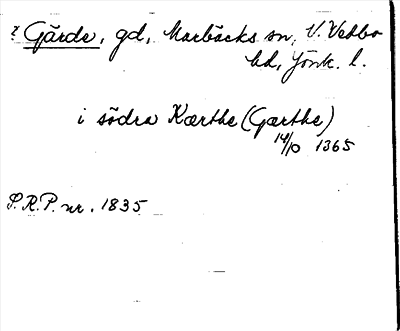 ? Gärde, gd, Marbäcks sn, V. Vedbo
hd, Jönk. l.
i södra Kærthe (Gærthe)
14/10 1365
S.R.P. nr. 1835